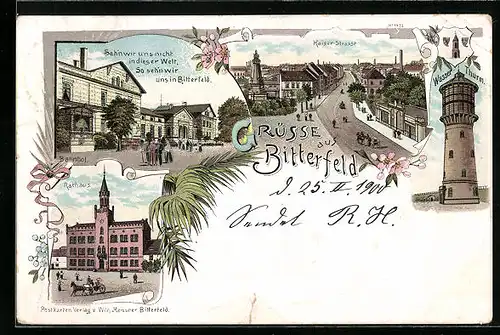 Sehn wir uns nicht
in dieser Welt,
So sehn wir
uns in Bitterfeld.
Kaiser-Strasse
Wasser Thurm.
Bahnhof.
GRÜSSE aus
Bitterfeld
d. 25. II 1900
Sendet R. H.
Rathaus
Postkarten Verlag v. Wilh. Bitterfeld.